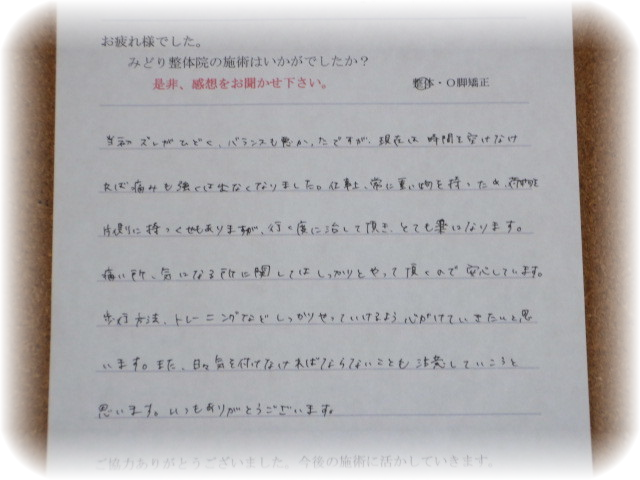 お疲れ様でした。
みどり整体院の施術はいかがでしたか？
是非、感想をお聞かせ下さい。
整体・O脚矯正
当初ズレがひどく、バランスも悪かったですが、現在は時間を空けなけ
れば痛みも強くは出なくなりました。仕事上、常に重い物を持ったり、荷物を
片側に持つくせもありますが、行く度に治して頂き、とても楽になります。
痛い所、気になる所に関してはしっかりとやって頂くので安心しています。
歩行方法、トレーニングなどしっかりやっていけるよう心がけていきたいと思
います。また、日々気を付けなければならないことも注意していこうと
思います。いつもありがとうございます。
ご協力ありがとうございました。今後の施術に活かしていきます。